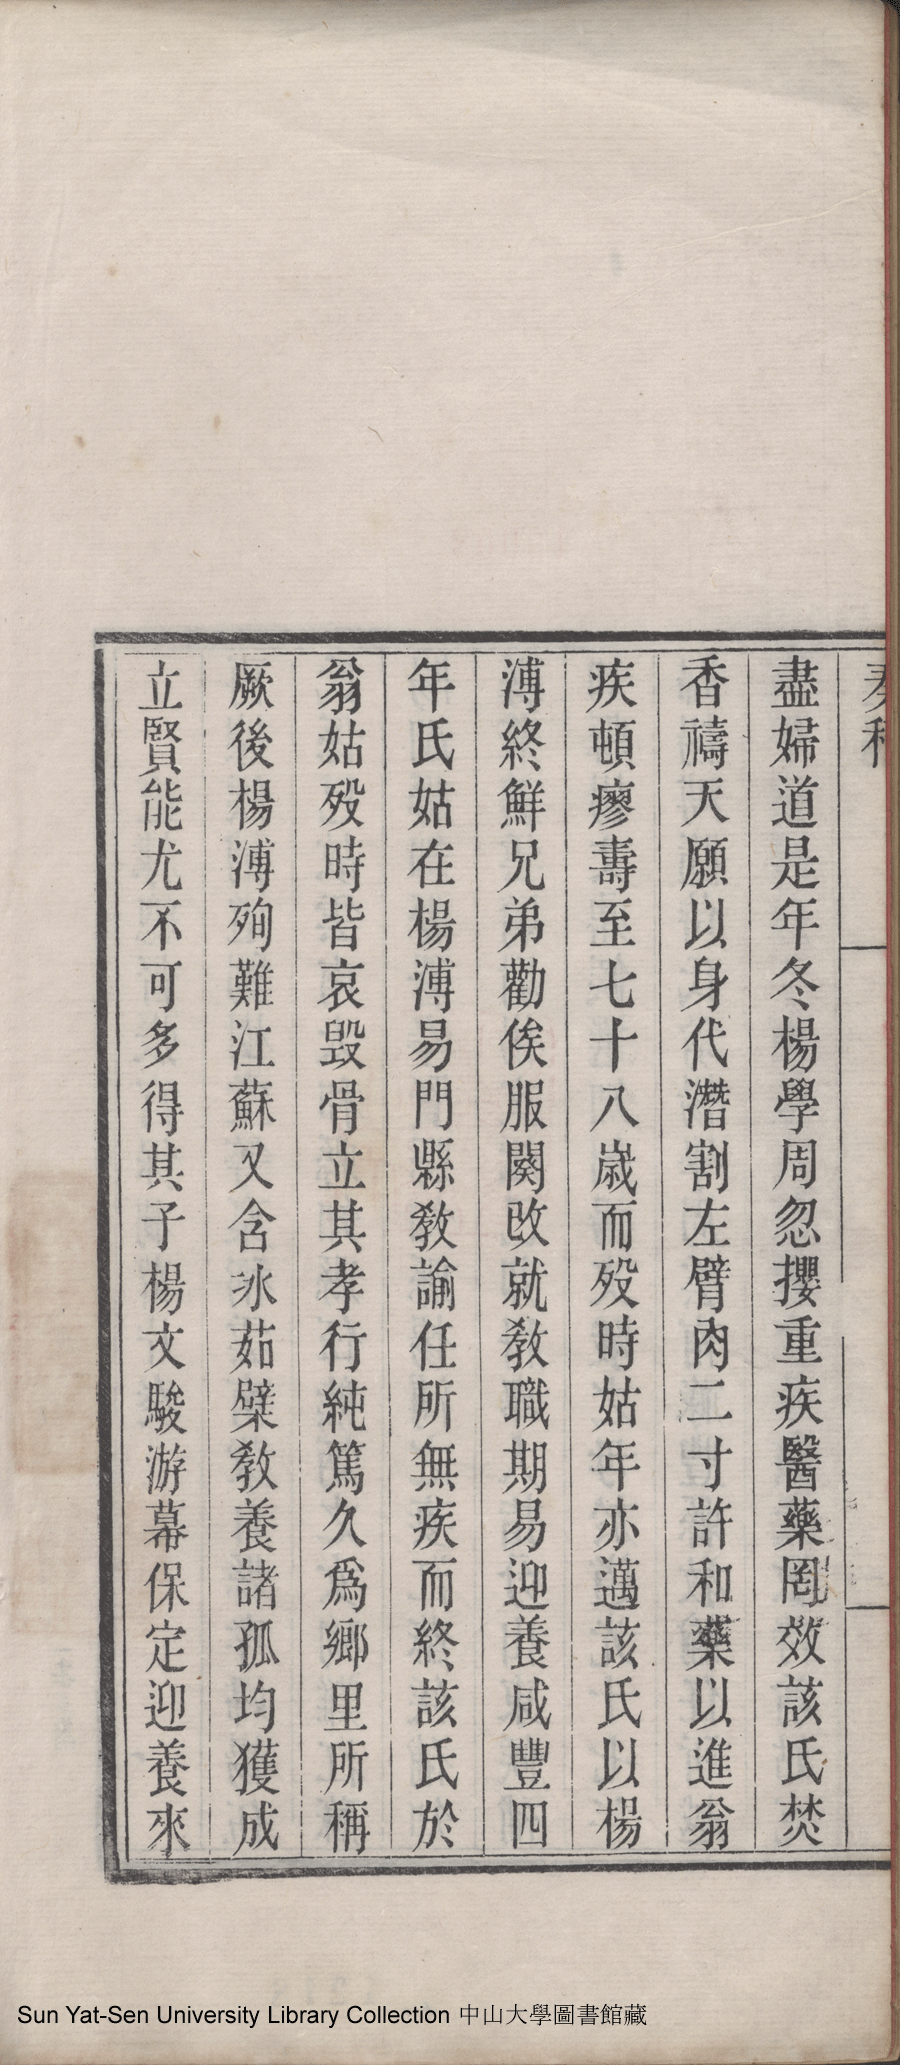 奏稿
盡婦道是年冬楊學周忽攖重疾醫藥罔效該氏焚
香禱天願以身代潛割左臂肉二寸許和藥以進翁
疾頓瘳壽至七十八歲而歿時姑年亦邁該氏以楊
溥終鮮兄弟勸俟服闋改就教職期易迎養咸豐四
年氏姑在楊溥易門縣教諭任所無疾而終該氏於
翁姑歿時皆哀毀骨立其孝行純篤久爲鄉里所稱
厥後楊溥殉難江蘇又含冰茹櫱教養諸孤均獲成
立賢能尤不可多得其子楊文駿游幕保定迎養來
Sun Yat-Sen University Library Collection 中山大學圖書館藏